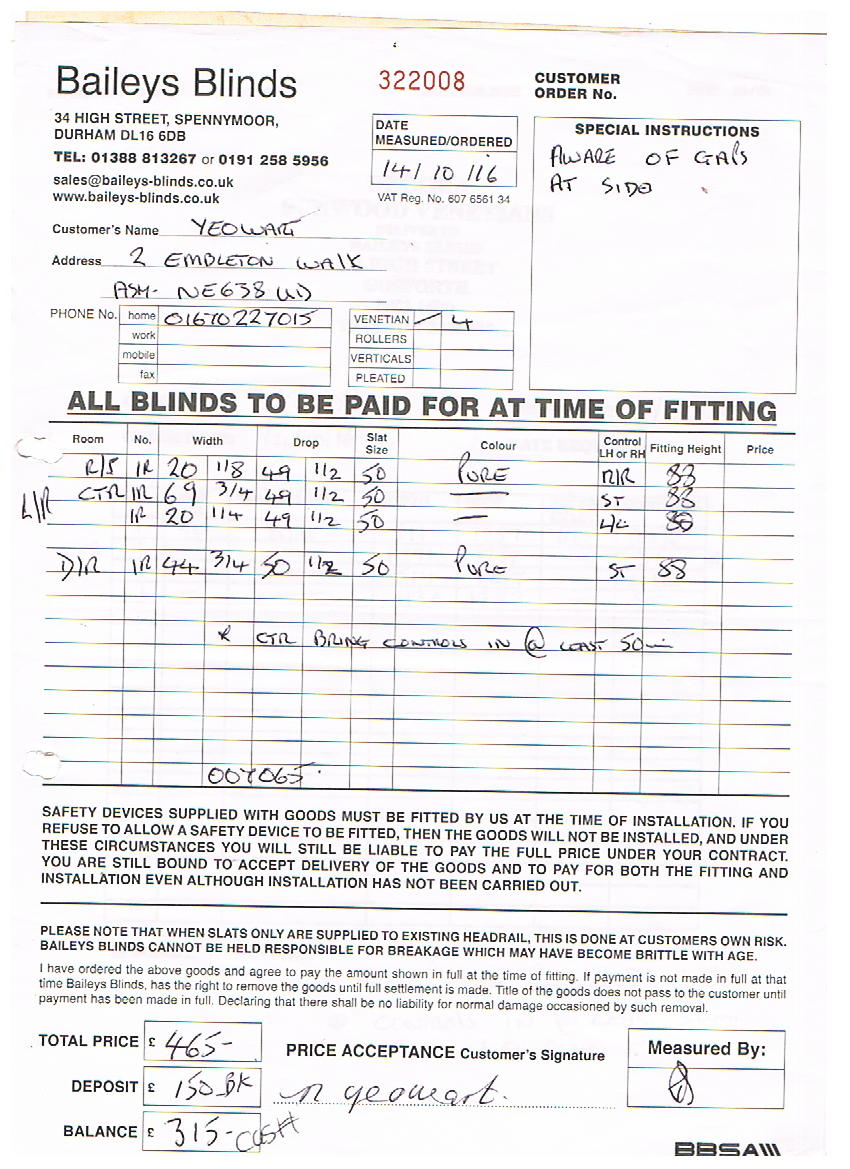 Baileys Blinds
322008
CUSTOMER
ORDER No.
34 HIGH STREET, SPENNYMOOR,
DURHAM DL16 6DB
TEL: 01388 813267 or 0191 258 5956
sales@baileys-blinds.co.uk
www.baileys-blinds.co.uk
DATE
MEASURED/ORDERED
14/10/16
VAT Reg. No. 607 6561 34
SPECIAL INSTRUCTIONS
AWARE OF GAPS
AT SIDE
Customer's Name YEOWART
Address 2 EMBLETON WALK
ASH- NE638
PHONE No. home 01670227015
work
mobile
fax
VENETIAN 4
ROLLERS
VERTICALS
PLEATED
ALL BLINDS TO BE PAID FOR AT TIME OF FITTING
Room No. Width Drop Slat Size Colour Control LH or RH Fitting Height Price
L/R
20 1/8 49 1/2 50 PURE R/R 88
CTR 1R 69 3/4 49 1/2 50 ST 88
1R 20 1/4 49 1/2 50 L/L
D/R 1R 44 3/4 50 1/2 50 PURE ST 88
* CTR BRING CONTROLS IN @ LEAST 50mm
007065
SAFETY DEVICES SUPPLIED WITH GOODS MUST BE FITTED BY US AT THE TIME OF INSTALLATION. IF YOU
REFUSE TO ALLOW A SAFETY DEVICE TO BE FITTED, THEN THE GOODS WILL NOT BE INSTALLED, AND UNDER
THESE CIRCUMSTANCES YOU WILL STILL BE LIABLE TO PAY THE FULL PRICE UNDER YOUR CONTRACT.
YOU ARE STILL BOUND TO ACCEPT DELIVERY OF THE GOODS AND TO PAY FOR BOTH THE FITTING AND
INSTALLATION EVEN ALTHOUGH INSTALLATION HAS NOT BEEN CARRIED OUT.
PLEASE NOTE THAT WHEN SLATS ONLY ARE SUPPLIED TO EXISTING HEADRAIL, THIS IS DONE AT CUSTOMERS OWN RISK.
BAILEYS BLINDS CANNOT BE HELD RESPONSIBLE FOR BREAKAGE WHICH MAY HAVE BECOME BRITTLE WITH AGE.
I have ordered the above goods and agree to pay the amount shown in full at the time of fitting. If payment is not made in full at that
time Baileys Blinds, has the right to remove the goods until full settlement is made. Title of the goods does not pass to the customer until
payment has been made in full. Declaring that there shall be no liability for normal damage occasioned by such removal.
TOTAL PRICE £ 465-
PRICE ACCEPTANCE Customer's Signature
Measured By:
DEPOSIT £ 150 BK
n yeowart.
BALANCE £ 315- CASH
BBSA